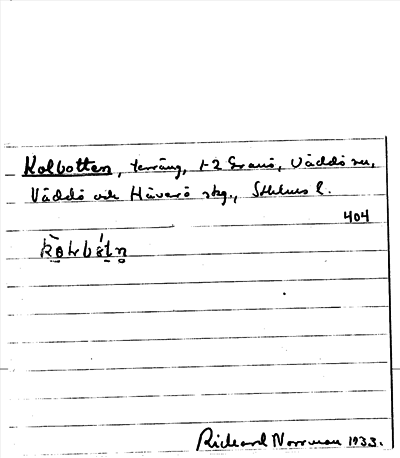 Kolbotten, terräng, 1-2 Granö, Väddö sn,
Väddö och Häverö skg., Sthlms l.
404
Richard Norrman 1933.